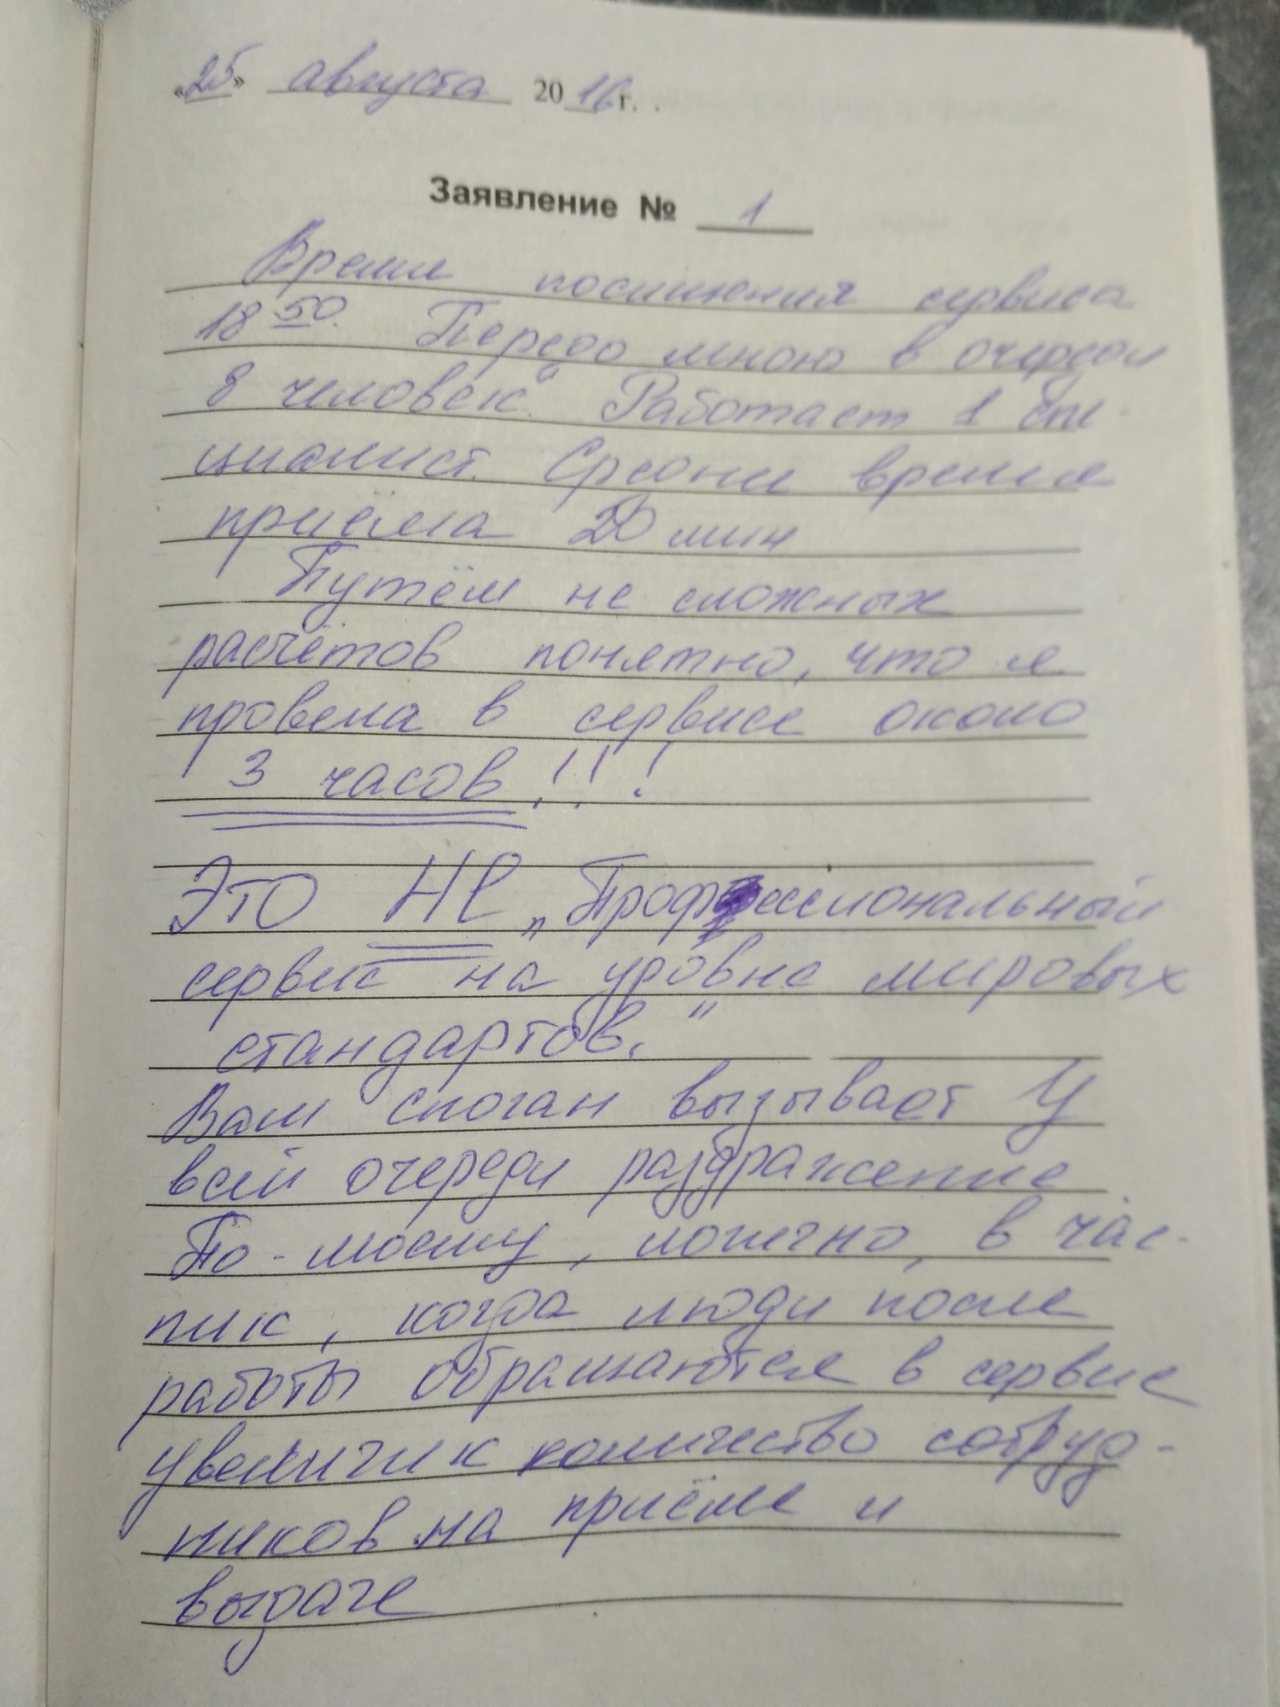 «25» августа 2016 г.
Заявление № 1
Время посищения сервиса
18 50. Передо мною в очереди
8 человек. Работает 1 спе-
циалист. Средни время
приёма 20 мин
Путём не сложных
расчётов понятно, что я
провела в сервисе около
3 часов!!!
Это НЕ „Профессиональный
сервис на уровне мировых
стандартов."
Ваш слоган вызывает у
всей очереди раздражение.
По-моему, логично, в час-
пик, когда люди после
работы обращаются в сервис
количество сотруд-
ников на приёме и
выдаче